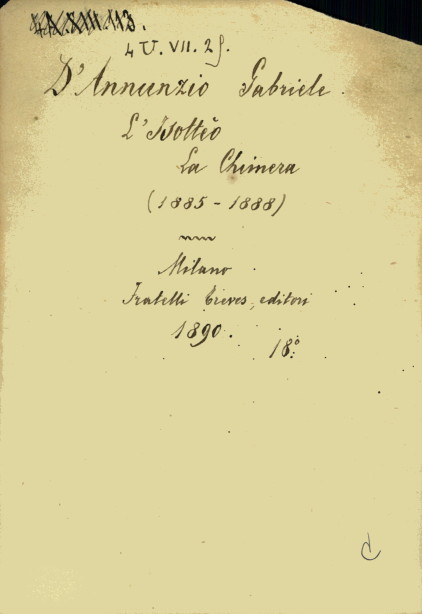 4 U. VII. 25.
D'Annunzio Gabriele.
L'Isottèo
La Chimera
(1885 - 1888)
Milano
Fratelli Treves, editori
1890.
18.º